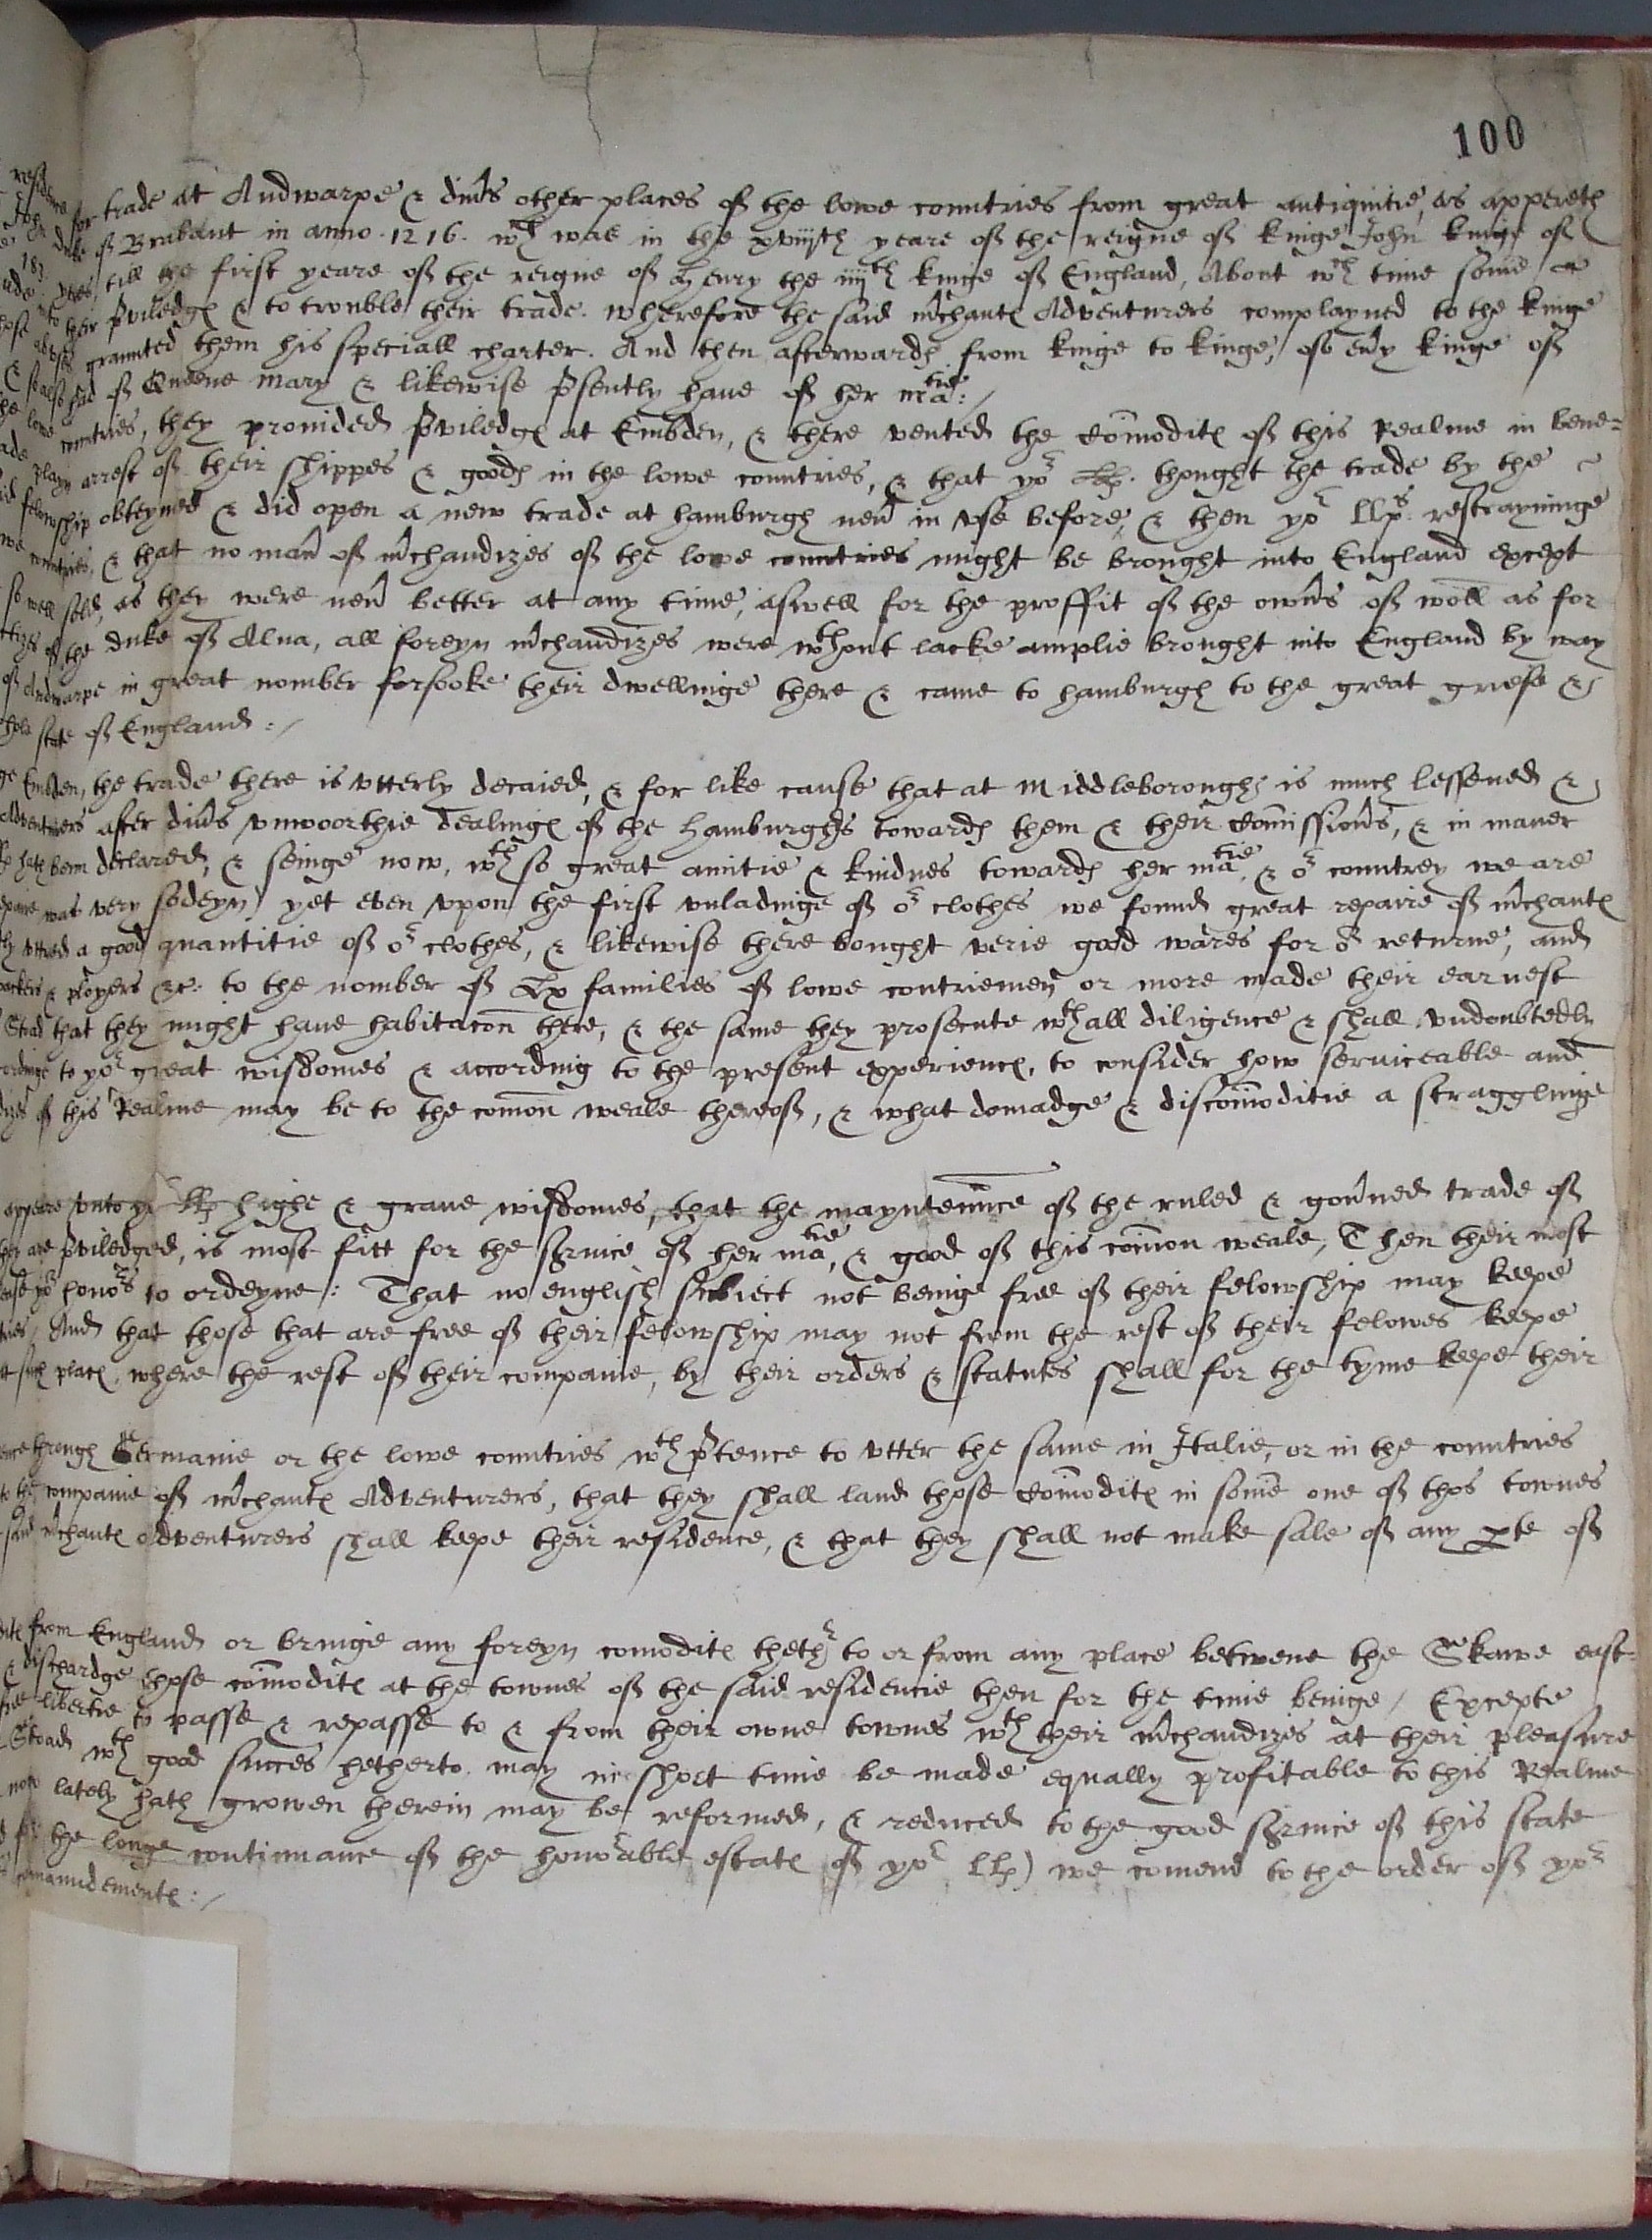 100
residence for trade at Andwarpe & diu's other places of the lowe countries from great antiquitie, as appereth
John duke of Brabant in anno .1216. wch was in the xviijth yeare of the reigne of kinge John kinge of
183 yeres, till the first yeare of the reigne of Henry the iiijth kinge of England, About wch time some
into their p'viledgs & to trouble their trade. wherefore the said m'chants Adventurers complayned to the kinge
graunted them his speciall charter. And then afterwards from kinge to kinge, of eu'y kinge of
& so also had of Queene Mary & likewise p'sently haue of her matie:/
the lowe countries, they prouided p'viledgs at Embden, & there vented the com̄odits of this Realme in bene=
playn arrest of their shippes & goods in the lowe countries, & that yor Lp. thought the trade by the
felowship obteyned & did open a new trade at hamburgh neu' in vse before, & then yor LLps restrayninge
countries, & that no man' of m'chandizes of the lowe countries might be brought into England except
so well sold, as they were neu' better at any time, aswell for the proffit of the own's of woll as for
of the duke of Alua, all foreyn m'chandizes were wthout lacke amplie brought into England by way
of Andwarpe in great nomber forsooke their dwellinge there & came to hamburgh to the great griefe &
state of England:/
Embden, the trade there is vtterly decaied, & for like cause that at Middleborough is much lessened &
Adventurers after diu's vnwoorthie dealings of the hamburgh's towards them & their com̄ission's, & in maner
hath been declared, & seinge now, wth so great amitie & kindnes towards her matie, & or countrey we are
was very sodeyn) yet even vpon the first vnladinge of or clothes we found great repaire of m'chants
vttred a good quantitie of or clothes, & likewise there bought verie good wares for or returne, and
packers & ployers &c: to the nomber of Lx families of lowe contriemen or more made their earnest
Stad that they might haue habitacon there, & the same they prosecute wth all diligence & shall vndoubtedly
to yor great wisdomes & according to the present experiencs, to consider how seruiceable and
of this Realme may be to the com̄on weale thereof, & what domadge & discom̄oditie a stragglinge
appeare vnto yor LLp highe & graue wisdomes, that the mayntenñce of the ruled & gou'ned trade of
are p'viledged, is most fitt for the seruice of her matie, & good of this com̄on weale, Then their most
yor honors to ordeyne: That no english subiect not beinge free of their felowship may keepe
And that those that are free of their felowship may not from the rest of their felowes keepe
such placs, where the rest of their companie, by their orders & statutes shall for the tyme keepe their
through Germanie or the lowe countries wth p'tence to vtter the same in Italie, or in the countries
to the companie of m'chants Adventurers, that they shall land those com̄odits in some one of thos townes
said m'chants Adventurers shall keepe their residence, & that they shall not make sale of any pte of
from England or bringe any foreyn comodits thethr to or from any place betwene the Skawe east=
& dischardge those com̄odits at the townes of the said residencie then for the time beinge/ Excepte
free libertie to passe & repasse to & from their owne townes wth their m'chandizes at their pleasure
Stoad wth good succes hetherto may in short time be made equally profitable to this Realme
now lately hath growen therein may be reformed, & reduced to the good seruice of this state
for the longe continuance of the honorable estats of yor LLp) we comend to the order of yor
com̄aundements:/